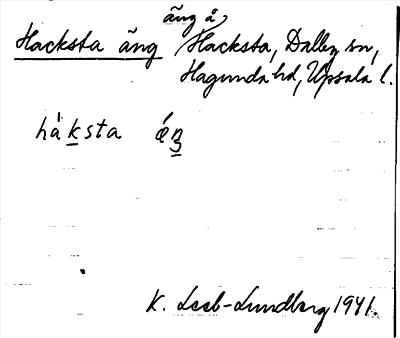 äng å
Hacksta äng Hacksta, Dalby sn,
Hagunda hd, Upsala l.
håksta
K. Leeb-Lundberg 1941.